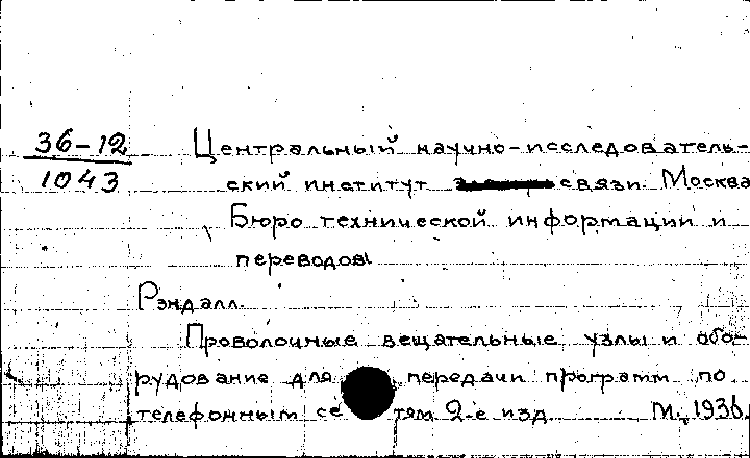 36-12
1043
Центральный научно-исследователь-
ский институт связи. Москва
Бюро технической информации и
переводов
Рэндалл.
Проволочные вещательные узлы и обо-
рудование для передачи программ по
телефонным сетям 2-е изд. М., 1936.